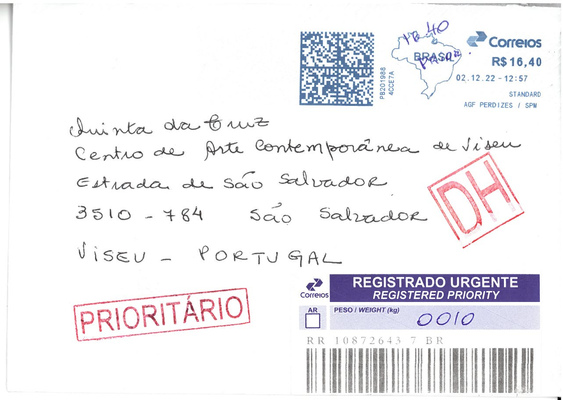 Correios
BRASIL
R$ 16,40
02.12.22 - 12:57
PB201988
4CCE7A
STANDARD
AGF PERDIZES / SPM
Quinta da Cruz
Centro de Arte Contemporânea de Viseu
Estrada de São Salvador
3510 - 784 São Salvador
Viseu - PORTUGAL
DH
PRIORITÁRIO
Correios
REGISTRADO URGENTE
REGISTERED PRIORITY
AR
PESO / WEIGHT (kg)
0010
RR 10872643 7 BR